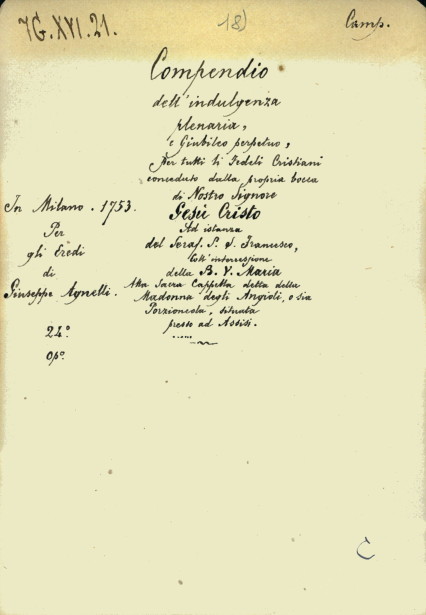 7G.XVI.21.
18)
Camp.
Compendio
dell'indulgenza
plenaria,
e Giubileo perpetuo,
Per tutti li Fedeli Cristiani
conceduto dalla propria bocca
di Nostro Signore
Gesù Cristo
Ad istanza
del Seraf. P. S. Francesco,
Coll'intercessione
della B. V. Maria
Alla Sacra Cappella detta della
Madonna degli Angioli, o sia
Porzioncola, situata
presso ad Assisi.
In Milano. 1753.
Per
gli Eredi
di
Giuseppe Agnelli.
24º
opº
C